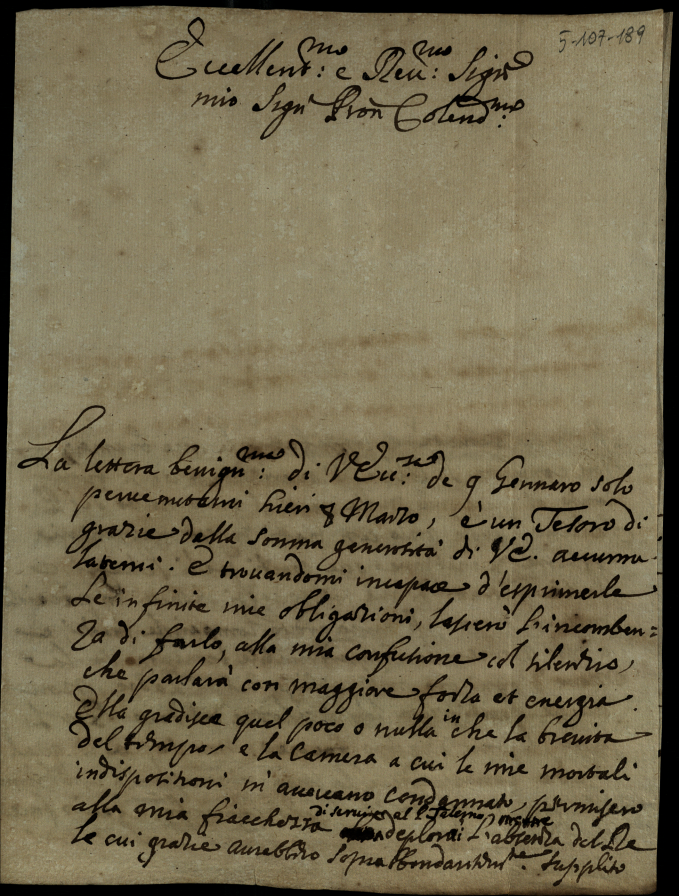 5-107-189
Eccellent:mo e Reu:mo Sigre
mio Sigr Pron Colend:mo
La lettera benign:ma di VEcc:za de 9 Gennaro solo
peruenutami hieri 8 Marzo, è un Tesoro di
grazie dalla somma generosità di VE. accumu-
latemi. E trouandomi incapace d'esprimerle
le infinite mie obligazioni, lascierò l'incomben=
za di farlo, alla mia confusione col silentio,
che parlarà con maggiore forza et energia.
Ella gradisce quel poco o nulla in che la breuità
del tempo, e la Camera a cui le mie mortali
indispositioni m'aueuano condannato, permisero
alla mia fiacchezza di seruire al P. Salerno, mentre
deplorai l'absenza del Re
le cui grazie aurebbero soprabbondantem:te supplito